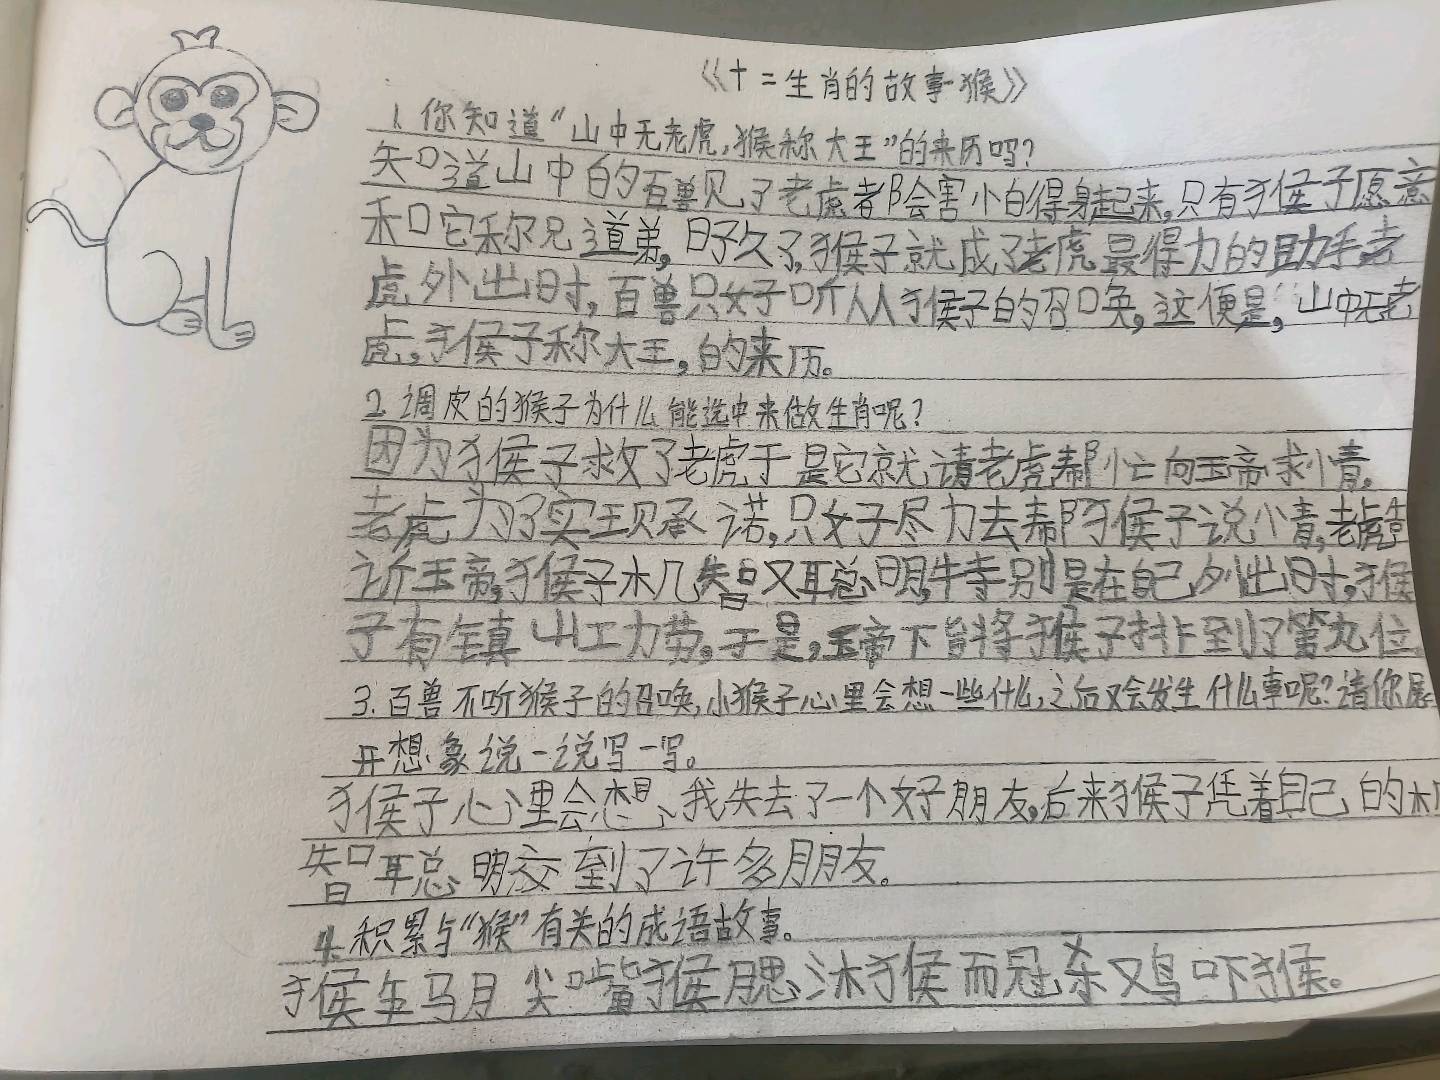 《十二生肖的故事·猴》
1. 你知道“山中无老虎,猴称大王”的来历吗?
知道山中的百兽见了老虎都会害怕得身起来,只有猴子愿意
和它称兄道弟,日子久了,猴子就成了老虎最得力的助手老
虎外出时,百兽只好听从猴子的召唤,这便是,山中无老
虎,猴子称大王,的来历。
2. 调皮的猴子为什么能选中来做生肖呢?
因为猴子救了老虎于是它就请老虎帮忙向玉帝求情。
老虎为了实现承诺,只好尽力去帮猴子说情,老虎告
诉玉帝,猴子机智又聪明,特别是在自己外出时,猴
子有镇山工力劳。于是,玉帝下旨将猴子排到了第九位
3. 百兽不听猴子的召唤,小猴子心里会想一些什么,之后又会发生什么事呢?请你展
开想象说一说写一写。
猴子心里会想、我失去了一个好朋友,后来猴子凭着自己的机
智聪明交到了许多朋友。
4. 积累与“猴”有关的成语故事。
猴年马月 尖嘴猴腮 沐猴而冠 杀又鸟吓猴。